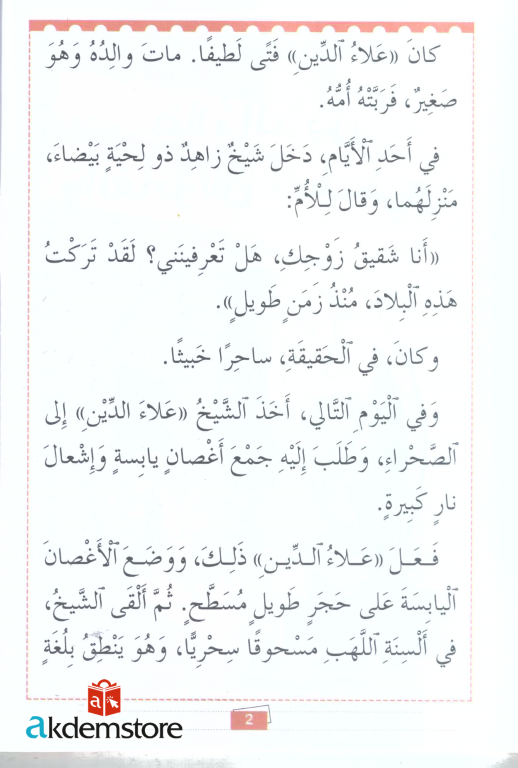 كانَ «عَلاءُ ٱلدِّينِ» فَتًى لَطيفًا. ماتَ والِدُهُ وَهُوَ
صَغِيرٌ، فَرَبَّتْهُ أُمُّهُ.
في أَحَدِ ٱلْأَيَّامِ، دَخَلَ شَيْخٌ زاهِدٌ ذو لِحْيَةٍ بَيْضاءَ،
مَنْزِلَهُما، وَقالَ لِـلْأُمِّ:
«أَنا شَقيقُ زَوْجِكِ، هَلْ تَعْرِفينَني؟ لَقَدْ تَرَكْتُ
هَذِهِ ٱلْبِلادَ، مُنْذُ زَمَنٍ طَويلٍ».
وكانَ، في ٱلْحَقيقَةِ، ساحِرًا خَبيثًا.
وَفي ٱلْيَوْمِ ٱلتَّالي، أَخَذَ ٱلشَّيْخُ «عَلاءَ الدِّيْنِ» إِلى
ٱلصَّحْراءِ، وَطَلَبَ إِلَيْهِ جَمْعَ أَغْصانٍ يابِسةٍ وَإِشْعالَ
نارٍ كَبِيرةٍ.
فَـعَـلَ «عَـلاءُ ٱلـدِّيـنِ» ذَلِـكَ، وَوَضَـعَ ٱلْأَغْصانَ
ٱلْيابِسَةَ عَلى حَجَرٍ طَويلٍ مُسَطَّحٍ. ثُمَّ أَلْقَى ٱلشَّيخُ،
في أَلْسِنَةِ ٱللَّهَبِ مَسْحوقًا سِحْرِيًّا، وَهُوَ يَنْطِقُ بِلُغَةٍ
2
a
akdemstore